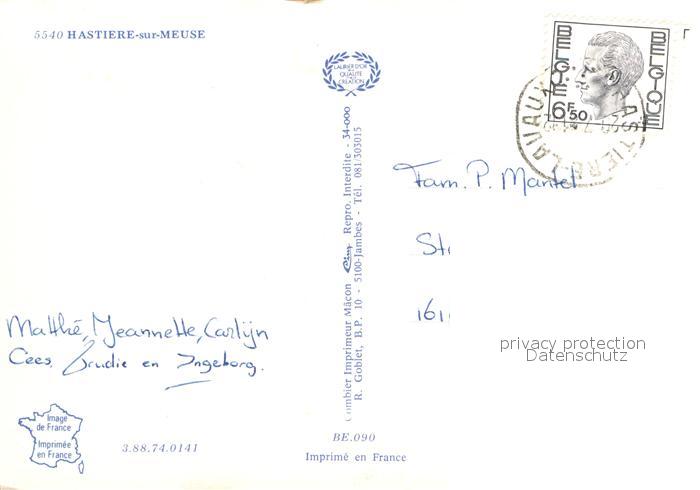 5540 HASTIERE-sur-MEUSE
LAURIER D'OR
DE LA QUALITÉ
CRÉATION
BELGIË
BELGIQUE
6F50
HASTIERE-LAVAUX
Combier Imprimeur Mâcon Cim Repro. Interdite - 34-000
R. Goblet, B.P. 10 - 5100-Jambes - Tél. 081/303015
Fam. P. Mantel
St.
161
Matthé, Jeannette, Carlijn
Cees, Trudie en Ingeborg.
privacy protection
Datenschutz
Image
de France
Imprimée
en France
3.88.74.0141
BE.090
Imprimé en France